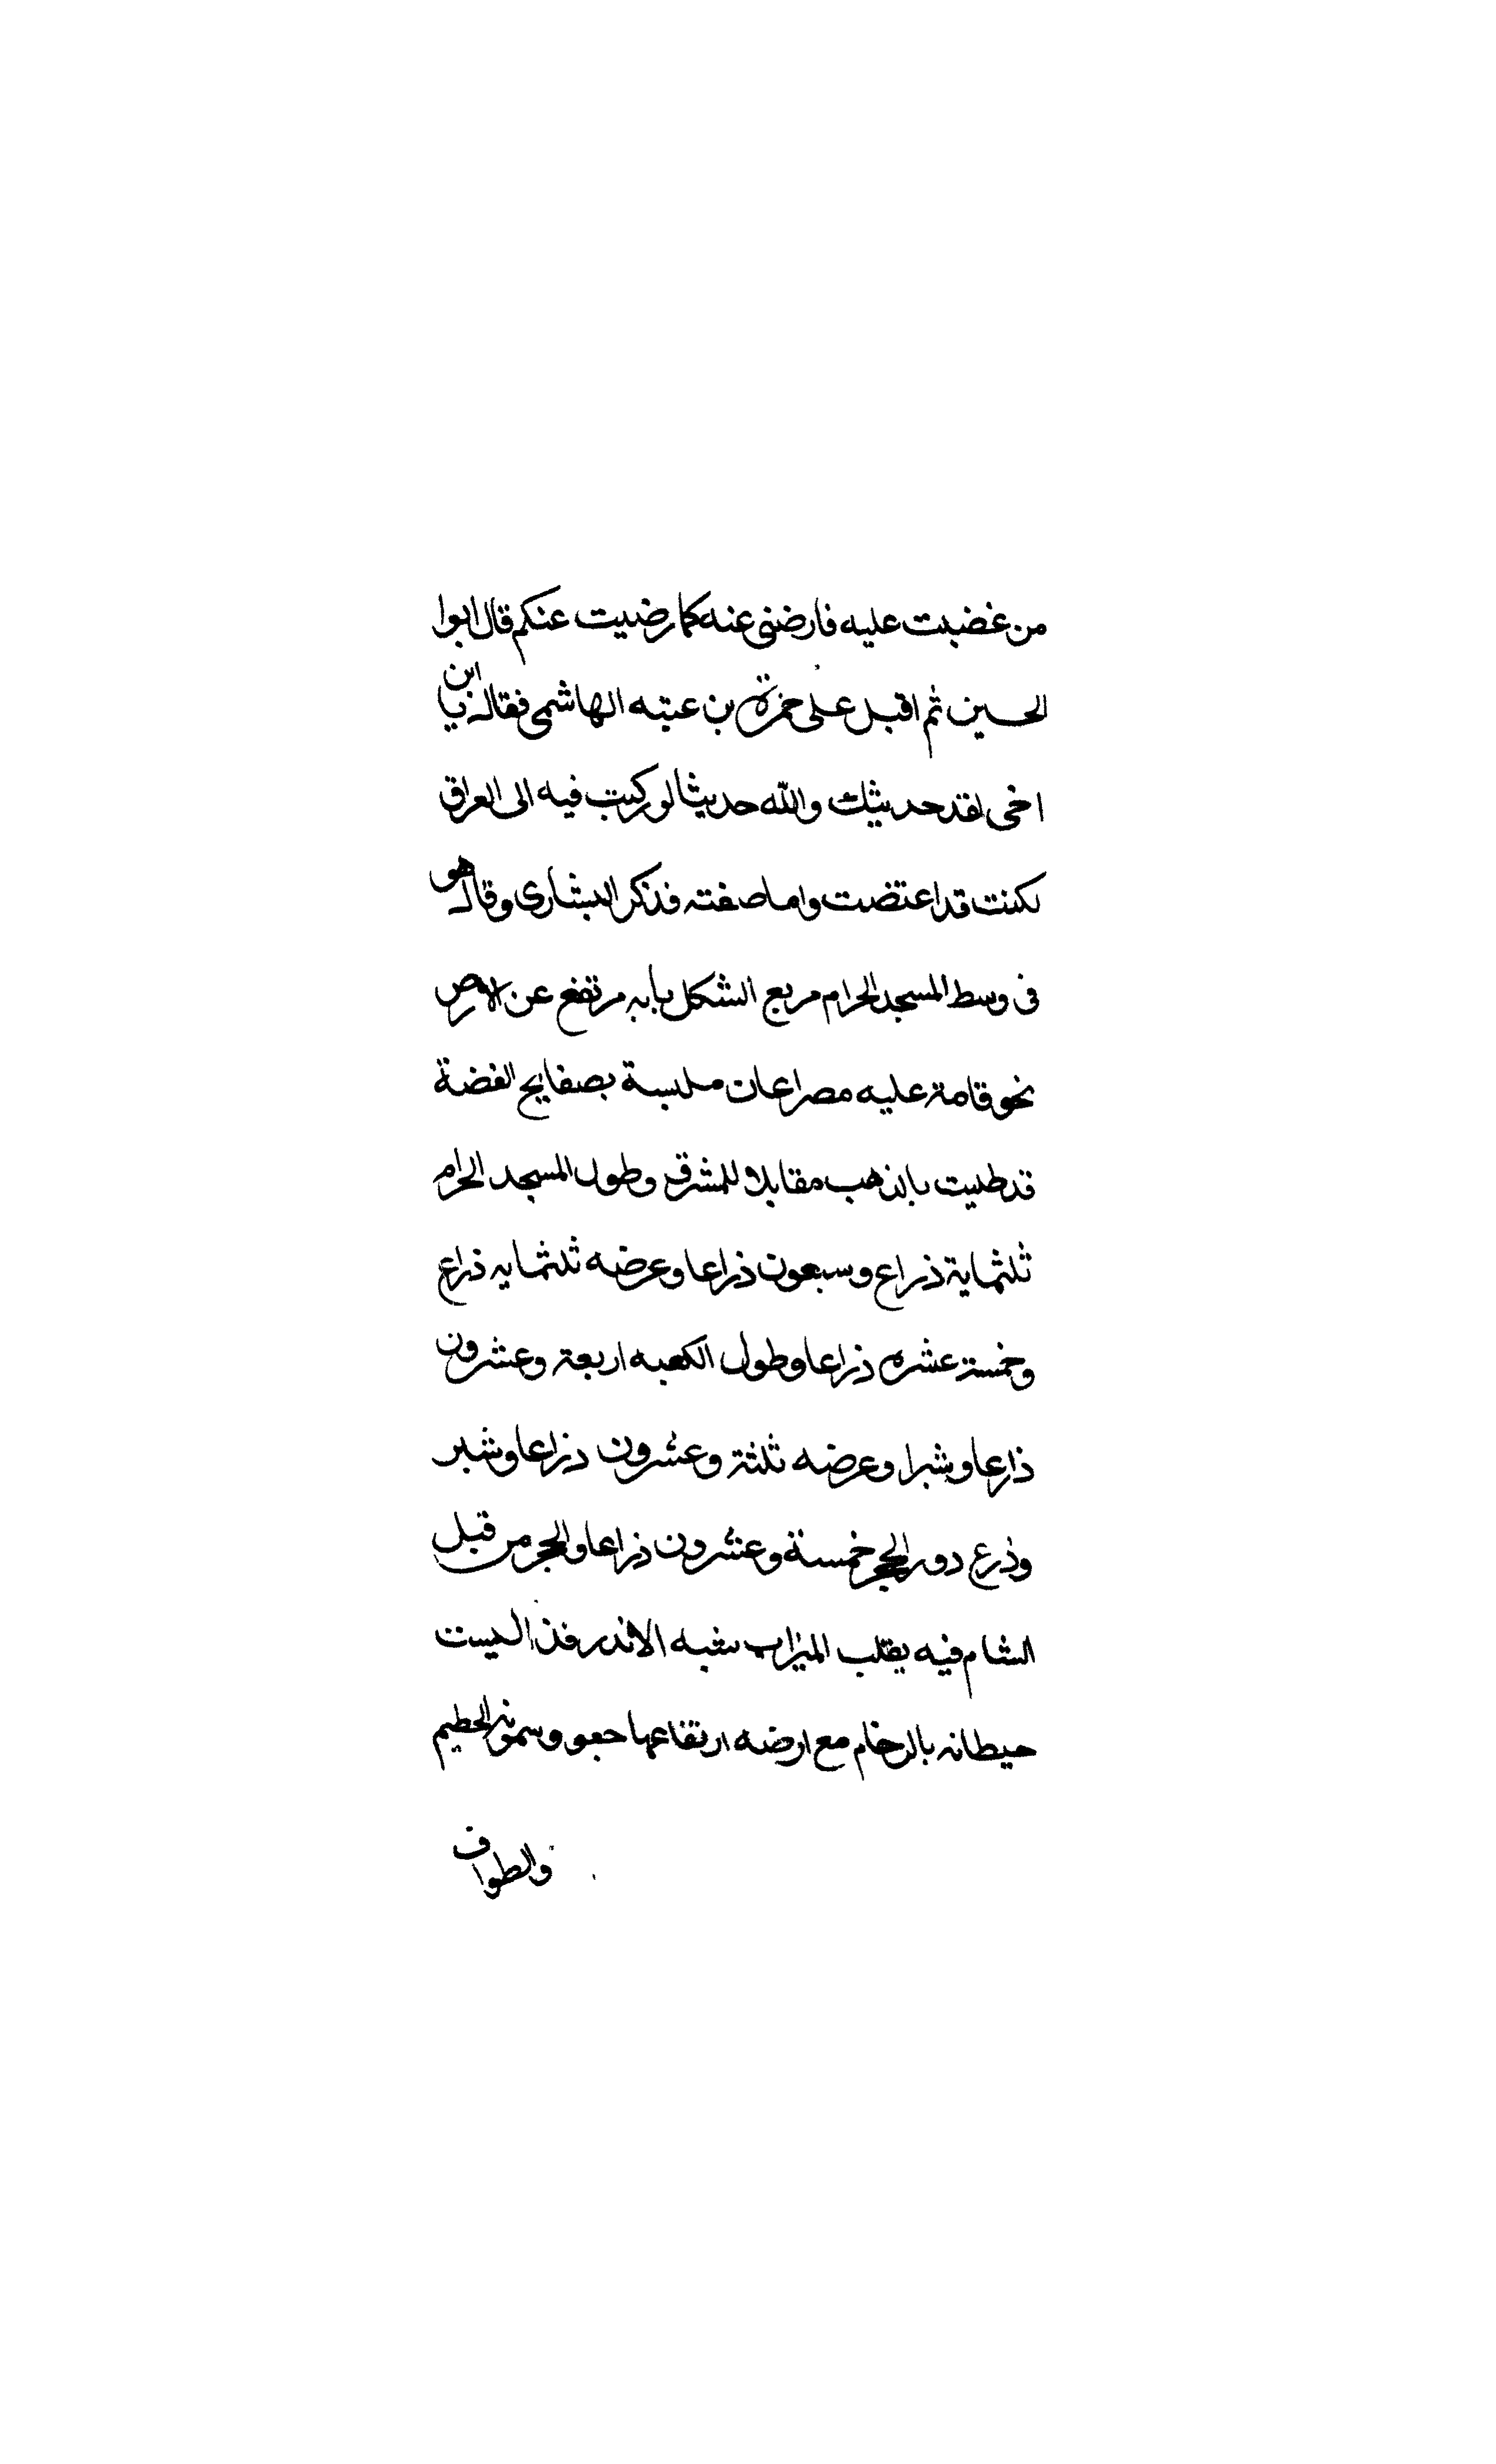 من غضبت عليه فارضني عنه كما رضيت عنكم قال ابوا
الحسين ثم اقبل على حمزة بن عتبه الهاشمي فقاله يا ابن
اخي لقد حدثيتك والله حديثا لو ركبت فيه الى العراق
لكنت قد اعتضت واما صفته فذكر البشاري وقال هو
في وسط المسجد الحرام مربع الشكل بابه مرتفع عن الارض
نحو قامة عليه مصراعان ملبسة بصفايح الفضة
قد طليت بالذهب مقابلا للمشرق وطول المسجد الحرام
ثلثماية ذراع وسبعون ذراعا وعرضه ثلثمايه ذراع
وخمسة عشره ذراعا وطول الكعبه اربعة وعشرون
ذارعا وشبرا وعرضه ثلثة وعشرون دزاعا وشبر
وذرع دور الحجر خمسة وعشرون ذراعا والحجر من قبل
الشام فيه يقلب الميزاب شبه الاندر فذ اليست
حيطانه بالرخام مع ارضه ارتفاعها حعو وسمونه الحطيم
والطواف